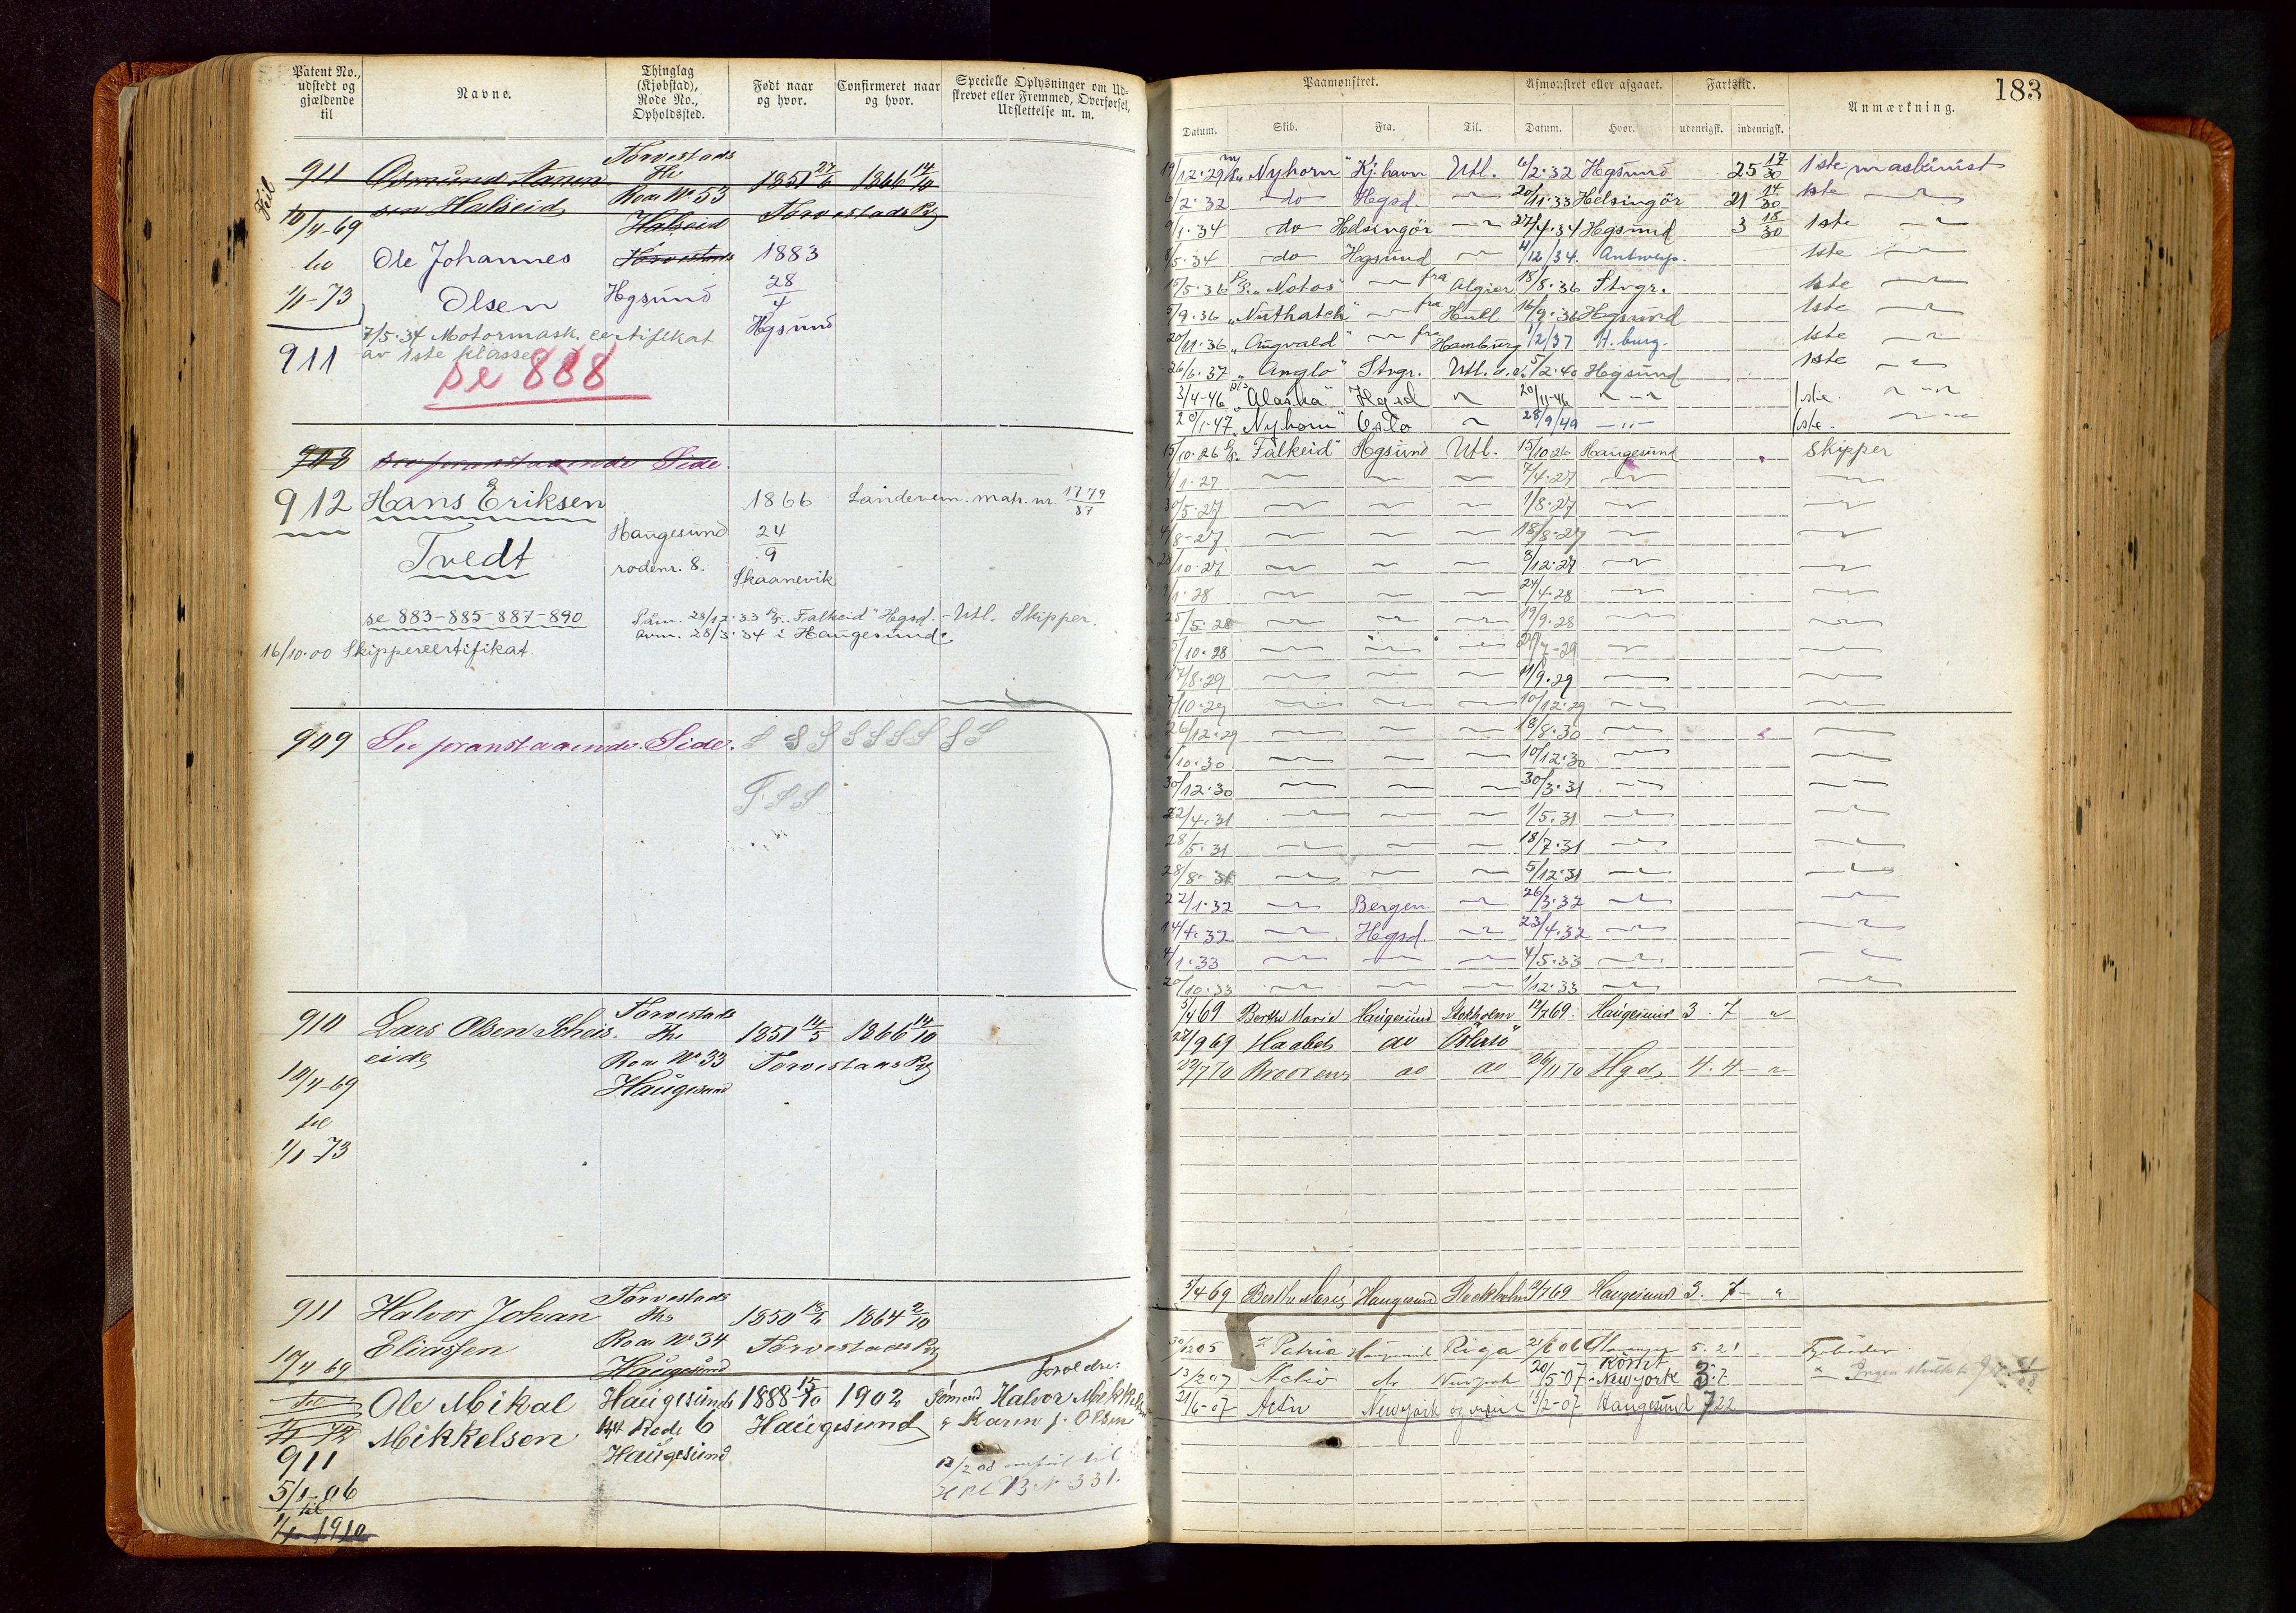 Patent No., udstedt og gjældende til
Navne.
Thinglag (Kjøbstad), Rode No., Opholdssted.
Født naar og hvor.
Confirmeret naar og hvor.
Specielle Oplysninger om Udskrevet eller Fremmed, Overførsel, Udslettelse m. m.
Feil
911
Torvestads
1851 27/6 1866 14/10
sen Halseid
Rode No 53
Halseid
Torvestads Pgj
10/4-69
til
1/1-73
Ole Johannes
Olsen
Torvestads
Hgsund
1883
28
4
Hgsund
7/5.34 Motormask. certifikat
av 1ste klasse.
911
se 888
908 See foranstaaende Side.
912 Hans Eriksen
Tvedt
Haugesund
rodenr. 8.
1866
24
9
Skaanevik
Landevern. matr. nr. 1779
87
se 883-885-887-890
Påm. 28/12.33 D/S. Falkeid" Hgsd. - Utl. Skipper.
avm. 28/3.34 i Haugesund.
16/10.00 Skippercertifikat.
909 See foranstaaende Side.
910 Lars Olsen Scheis
eide
Torvestads
Rode No 33
Haugesund
1851 14/5 1866 14/10
Torvestads Pgj
10/4-69
til
1/1-73
911 Halvor Johan
Eliassen
Torvestads
Rode No 34
Haugesund
1850 18/6 1864 2/10
Torvestads Pgj
10/4 69
til
1/1-72
Ole Mikal
Mikkelsen
Haugesunds
Rode 6
Haugesund
1888 15/10 1902
Haugesund
Foreldre:
Sømand Halvor Mikkelsen
& Karen J. Olsen
13/2 08 til
B. N 331.
911
5/1-06
til
1/1 1910
183
Paamønstret.
Afmønstret eller afgaaet.
Fartstid.
Anmærkning.
Datum. Skib. Fra. Til. Datum. Hvor. udenrigsk. indenrigsk.
19/12.29 "Nyhorn" Kj.havn Utl. 6/2.32 Hgsund 25 17/30 1ste maskinist
6/2.32 do Hgsd. 20/11.33 Helsingör 21 14/30 1ste
9/1.34 do Helsingör 27/4.34 Hgsund 3 18/30 1ste
8/5.34 do Hgsund 4/12/34. Antwerp. 1ste
15/5.36 D/S. "Notos" fra Algier 18/8.36 Stvgr. 1ste
5/9.36 "Nuthatch" fra Hull 16/9.36 Hgsund 1ste
20/11.36 "Augvald" fra Hamburg 1/2/37 H.burg. 1ste
26/6.37 "Anglo" Stvgr. Utl. 5/2.40 Hgsund 1ste
3/4-46 D/S "Alaska" Hgsd 20/11-46 1ste.
20/1.47 "Nyhorn" Oslo 28/9/49 1ste.
15/10.26 D/S. Falkeid" Hgsund Utl. 15/10 26 Haugesund Skipper
1.27 7/4.27
30/5.27 1/8.27
4/8-27 18/8.27
20/10.27 8/12.27
1.28 24/4.28
25/5.28 19/9.28
5/10.28 7-29
17/8.29 11/9.29
7/10.29 10/12.29
26/12.29 18/8.30
10.30 10/12.30
30/12.30 30/3.31
22/4.31 1/5.31
28/5.31 18/7.31
28/8.31 5/12.31
22/1.32 Bergen 26/3.32
14/4.32 Hgsd. 23/4.32
4/1.33 4/5.33
20/10.33 1/12.33
5/4 69 Berthe Marie Haugesund Stokholm 12/7 69. Haugesund 3. 7 "
28/9 69 Haabets do Östersö
22/7 70 Brødrene do do 26/11 70 Hgd. 4. 4 "
5/4 69 Berthe Marie Haugesund Stockholm 9/7 69 Haugesund 3. 7 "
30/12 05 Patria Haugesund Riga 21/6 06 5. 21
13/2 07 Activ do Newyork 20/5-07 Newyork 3. 7
21/6-07 Activ Newyork 13/2-07 Haugesund 7 22